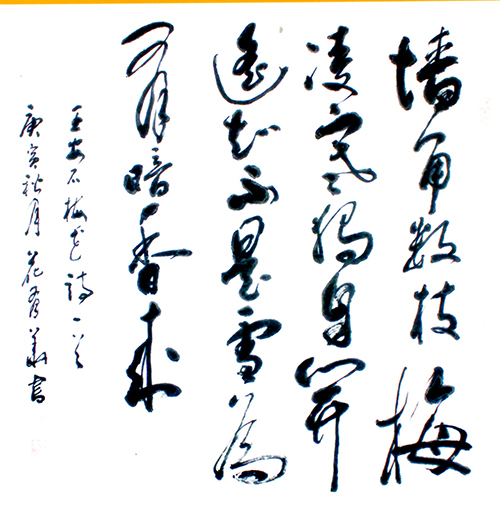 墙角数枝梅
凌寒独自開
遥知不是雪為
有暗香来
王安石梅花詩一首
庚寅秋月 花 書